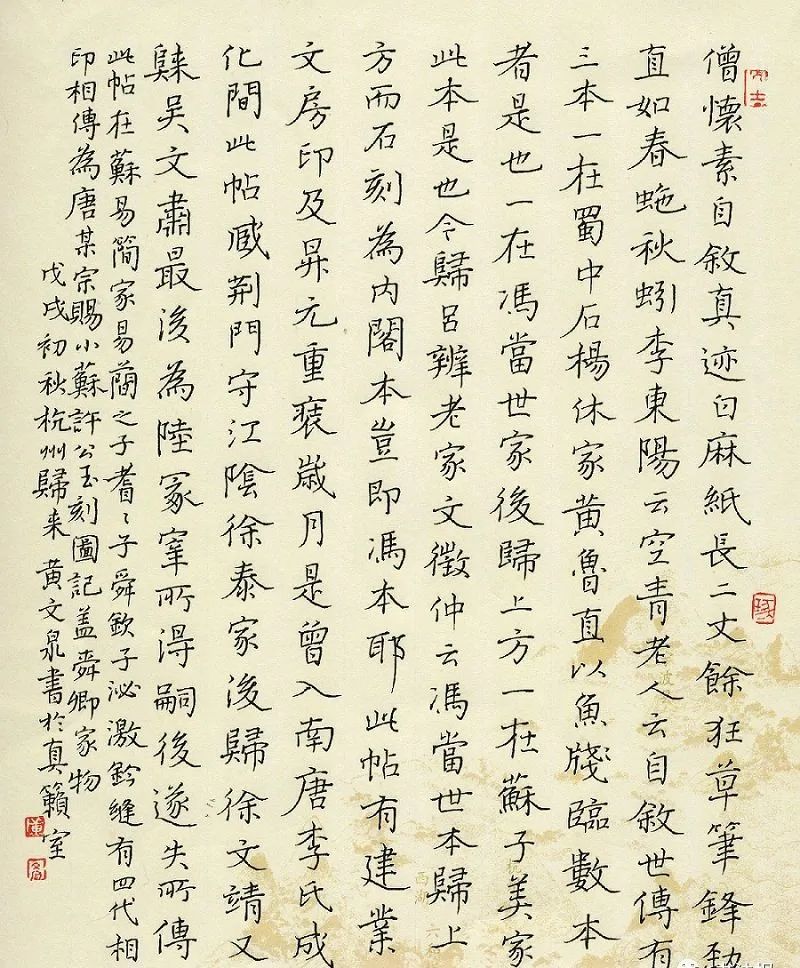 僧懷素自敘真迹白麻紙長二丈餘狂草筆鋒勁
直如春虵秋蚓李東陽云空青老人云自敘世傳有
三本一在蜀中石楊休家黃魯直以魚牋臨數本
者是也一在馮當世家後歸上方一在蘇子美家
此本是也今歸呂辨老家文徵仲云馮當世本歸上
方而石刻為內閣本豈即馮本耶此帖有建業
文房印及昇元重裝歲月是曾入南唐李氏成
化間此帖藏荆門守江陰徐泰家後歸徐文靖又
歸吴文肅最後為陸冢宰所得嗣後遂失所傳
此帖在蘇易簡家易蕳之子耆〻子舜欽子泌激鈐縫有四代相
印相傳為唐某宗賜小蘇許公玉刻圖記盖舜卿家物
戊戌初秋杭州歸来黄文泉書於真籟室